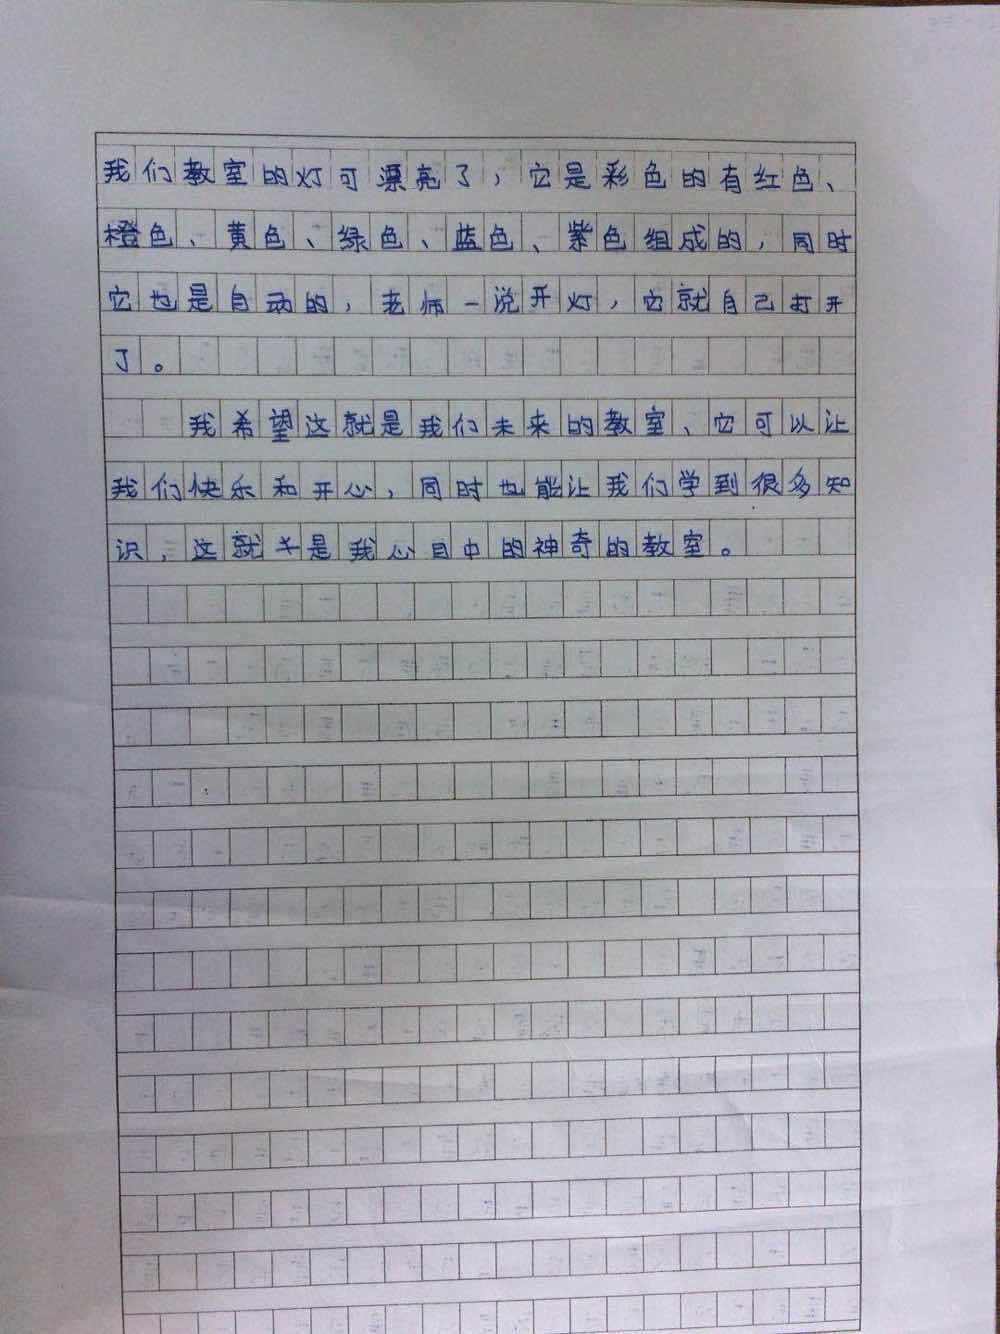 我们教室的灯可漂亮了，它是彩色的有红色、
橙色、黄色、绿色、蓝色、紫色组成的，同时
它也是自动的，老师一说开灯，它就自己打开
了。
我希望这就是我们未来的教室、它可以让
我们快乐和开心，同时也能让我们学到很多知
识，这就是我心目中的神奇的教室。